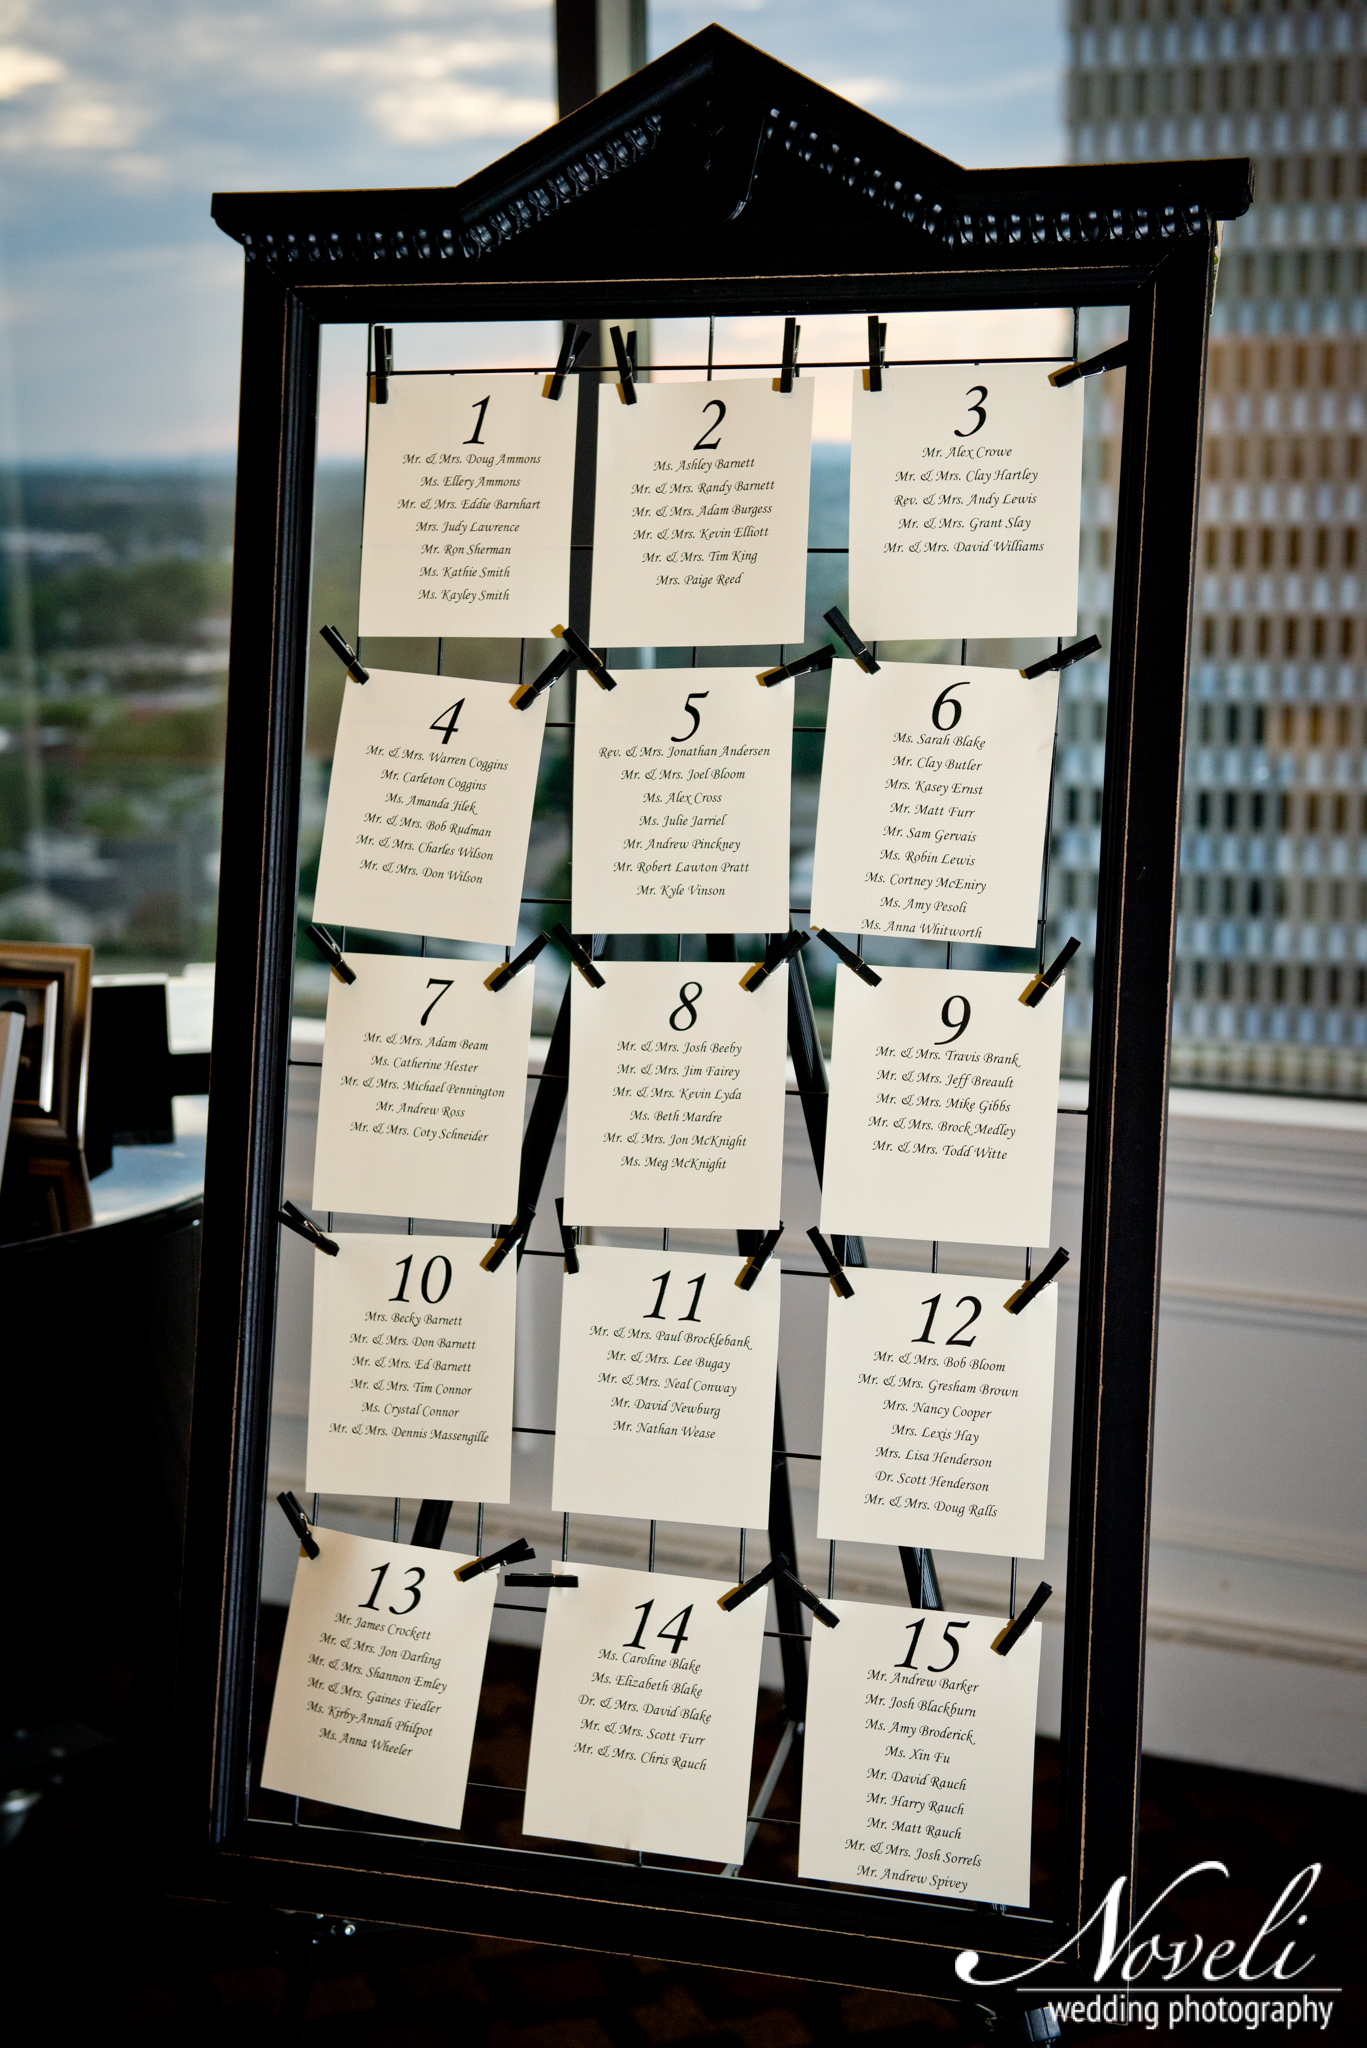 1
Mr. & Mrs. Doug Ammons
Ms. Ellery Ammons
Mr. & Mrs. Eddie Barnhart
Mrs. Judy Lawrence
Mr. Ron Sherman
Ms. Kathie Smith
Ms. Kayley Smith
2
Ms. Ashley Barnett
Mr. & Mrs. Randy Barnett
Mr. & Mrs. Adam Burgess
Mr. & Mrs. Kevin Elliott
Mr. & Mrs. Tim King
Mrs. Paige Reed
3
Mr. Alex Crowe
Mr. & Mrs. Clay Hartley
Rev. & Mrs. Andy Lewis
Mr. & Mrs. Grant Slay
Mr. & Mrs. David Williams
4
Mr. & Mrs. Warren Coggins
Mr. Carleton Coggins
Ms. Amanda Jilek
Mr. & Mrs. Bob Rudman
Mr. & Mrs. Charles Wilson
Mr. & Mrs. Don Wilson
5
Rev. & Mrs. Jonathan Andersen
Mr. & Mrs. Joel Bloom
Ms. Alex Cross
Ms. Julie Jarriel
Mr. Andrew Pinckney
Mr. Robert Lawton Pratt
Mr. Kyle Vinson
6
Ms. Sarah Blake
Mr. Clay Butler
Mrs. Kasey Ernst
Mr. Matt Furr
Mr. Sam Gervais
Ms. Robin Lewis
Ms. Cortney McEniry
Ms. Amy Pesoli
Ms. Anna Whitworth
7
Mr. & Mrs. Adam Beam
Ms. Catherine Hester
Mr. & Mrs. Michael Pennington
Mr. Andrew Ross
Mr. & Mrs. Coty Schneider
8
Mr. & Mrs. Josh Beeby
Mr. & Mrs. Jim Fairey
Mr. & Mrs. Kevin Lyda
Ms. Beth Mardre
Mr. & Mrs. Jon McKnight
Ms. Meg McKnight
9
Mr. & Mrs. Travis Brank
Mr. & Mrs. Jeff Breault
Mr. & Mrs. Mike Gibbs
Mr. & Mrs. Brock Medley
Mr. & Mrs. Todd Witte
10
Mrs. Becky Barnett
Mr. & Mrs. Don Barnett
Mr. & Mrs. Ed Barnett
Mr. & Mrs. Tim Connor
Ms. Crystal Connor
Mr. & Mrs. Dennis Massengille
11
Mr. & Mrs. Paul Brocklebank
Mr. & Mrs. Lee Bugay
Mr. & Mrs. Neal Conway
Mr. David Newburg
Mr. Nathan Wease
12
Mr. & Mrs. Bob Bloom
Mr. & Mrs. Gresham Brown
Mrs. Nancy Cooper
Mrs. Lexis Hay
Mrs. Lisa Henderson
Dr. Scott Henderson
Mr. & Mrs. Doug Ralls
13
Mr. James Crockett
Mr. & Mrs. Jon Darling
Mr. & Mrs. Shannon Emley
Mr. & Mrs. Gaines Fiedler
Ms. Kirby-Annah Philpot
Ms. Anna Wheeler
14
Ms. Caroline Blake
Ms. Elizabeth Blake
Dr. & Mrs. David Blake
Mr. & Mrs. Scott Furr
Mr. & Mrs. Chris Rauch
15
Mr. Andrew Barker
Mr. Josh Blackburn
Ms. Amy Broderick
Ms. Xin Fu
Mr. David Rauch
Mr. Harry Rauch
Mr. Matt Rauch
Mr. & Mrs. Josh Sorrels
Mr. Andrew Spivey
Noveli
wedding photography